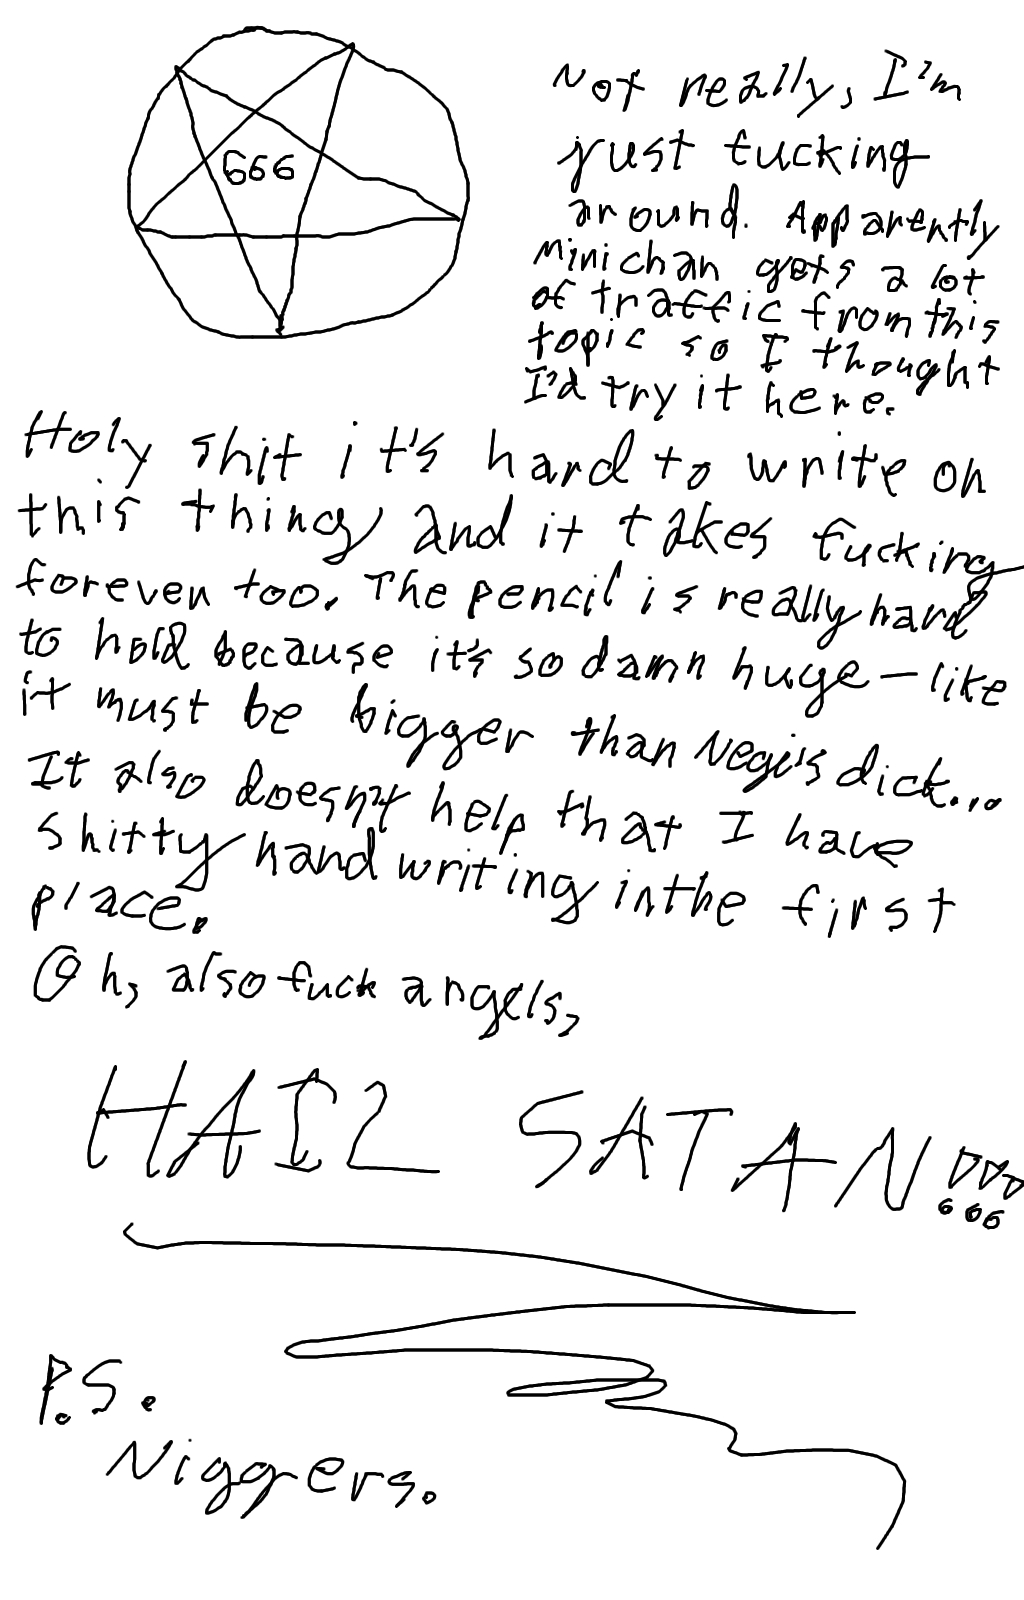 666
Not really, I'm
just fucking
around. Apparently
Minichan gets a lot
of traffic from this
topic so I thought
I'd try it here.
Holy shit it's hard to write on
this thing and it takes fucking
forever too. The pencil is really hard
to hold because it's so damn huge—like
it must be bigger than Negi's dick...
It also doesn't help that I have
shitty handwriting in the first
place.
Oh, also fuck angels,
HAIL SATAN!!!
666
P.S.
Niggers.